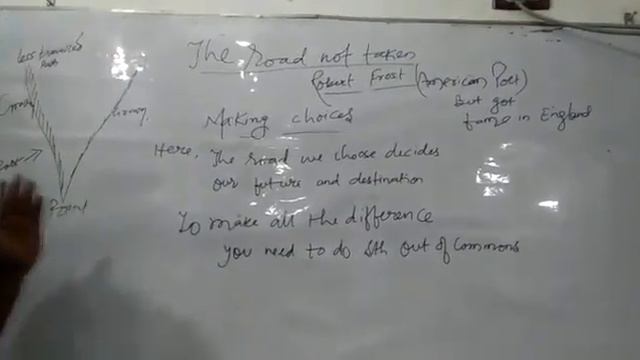 The road not taken
Robert Frost (American Poet)
But got
fame in England
Making choices
Here, The road we choose decides
our future and destination
To make all the difference
you need to do sth out of Commons
less travelled
Path
Point